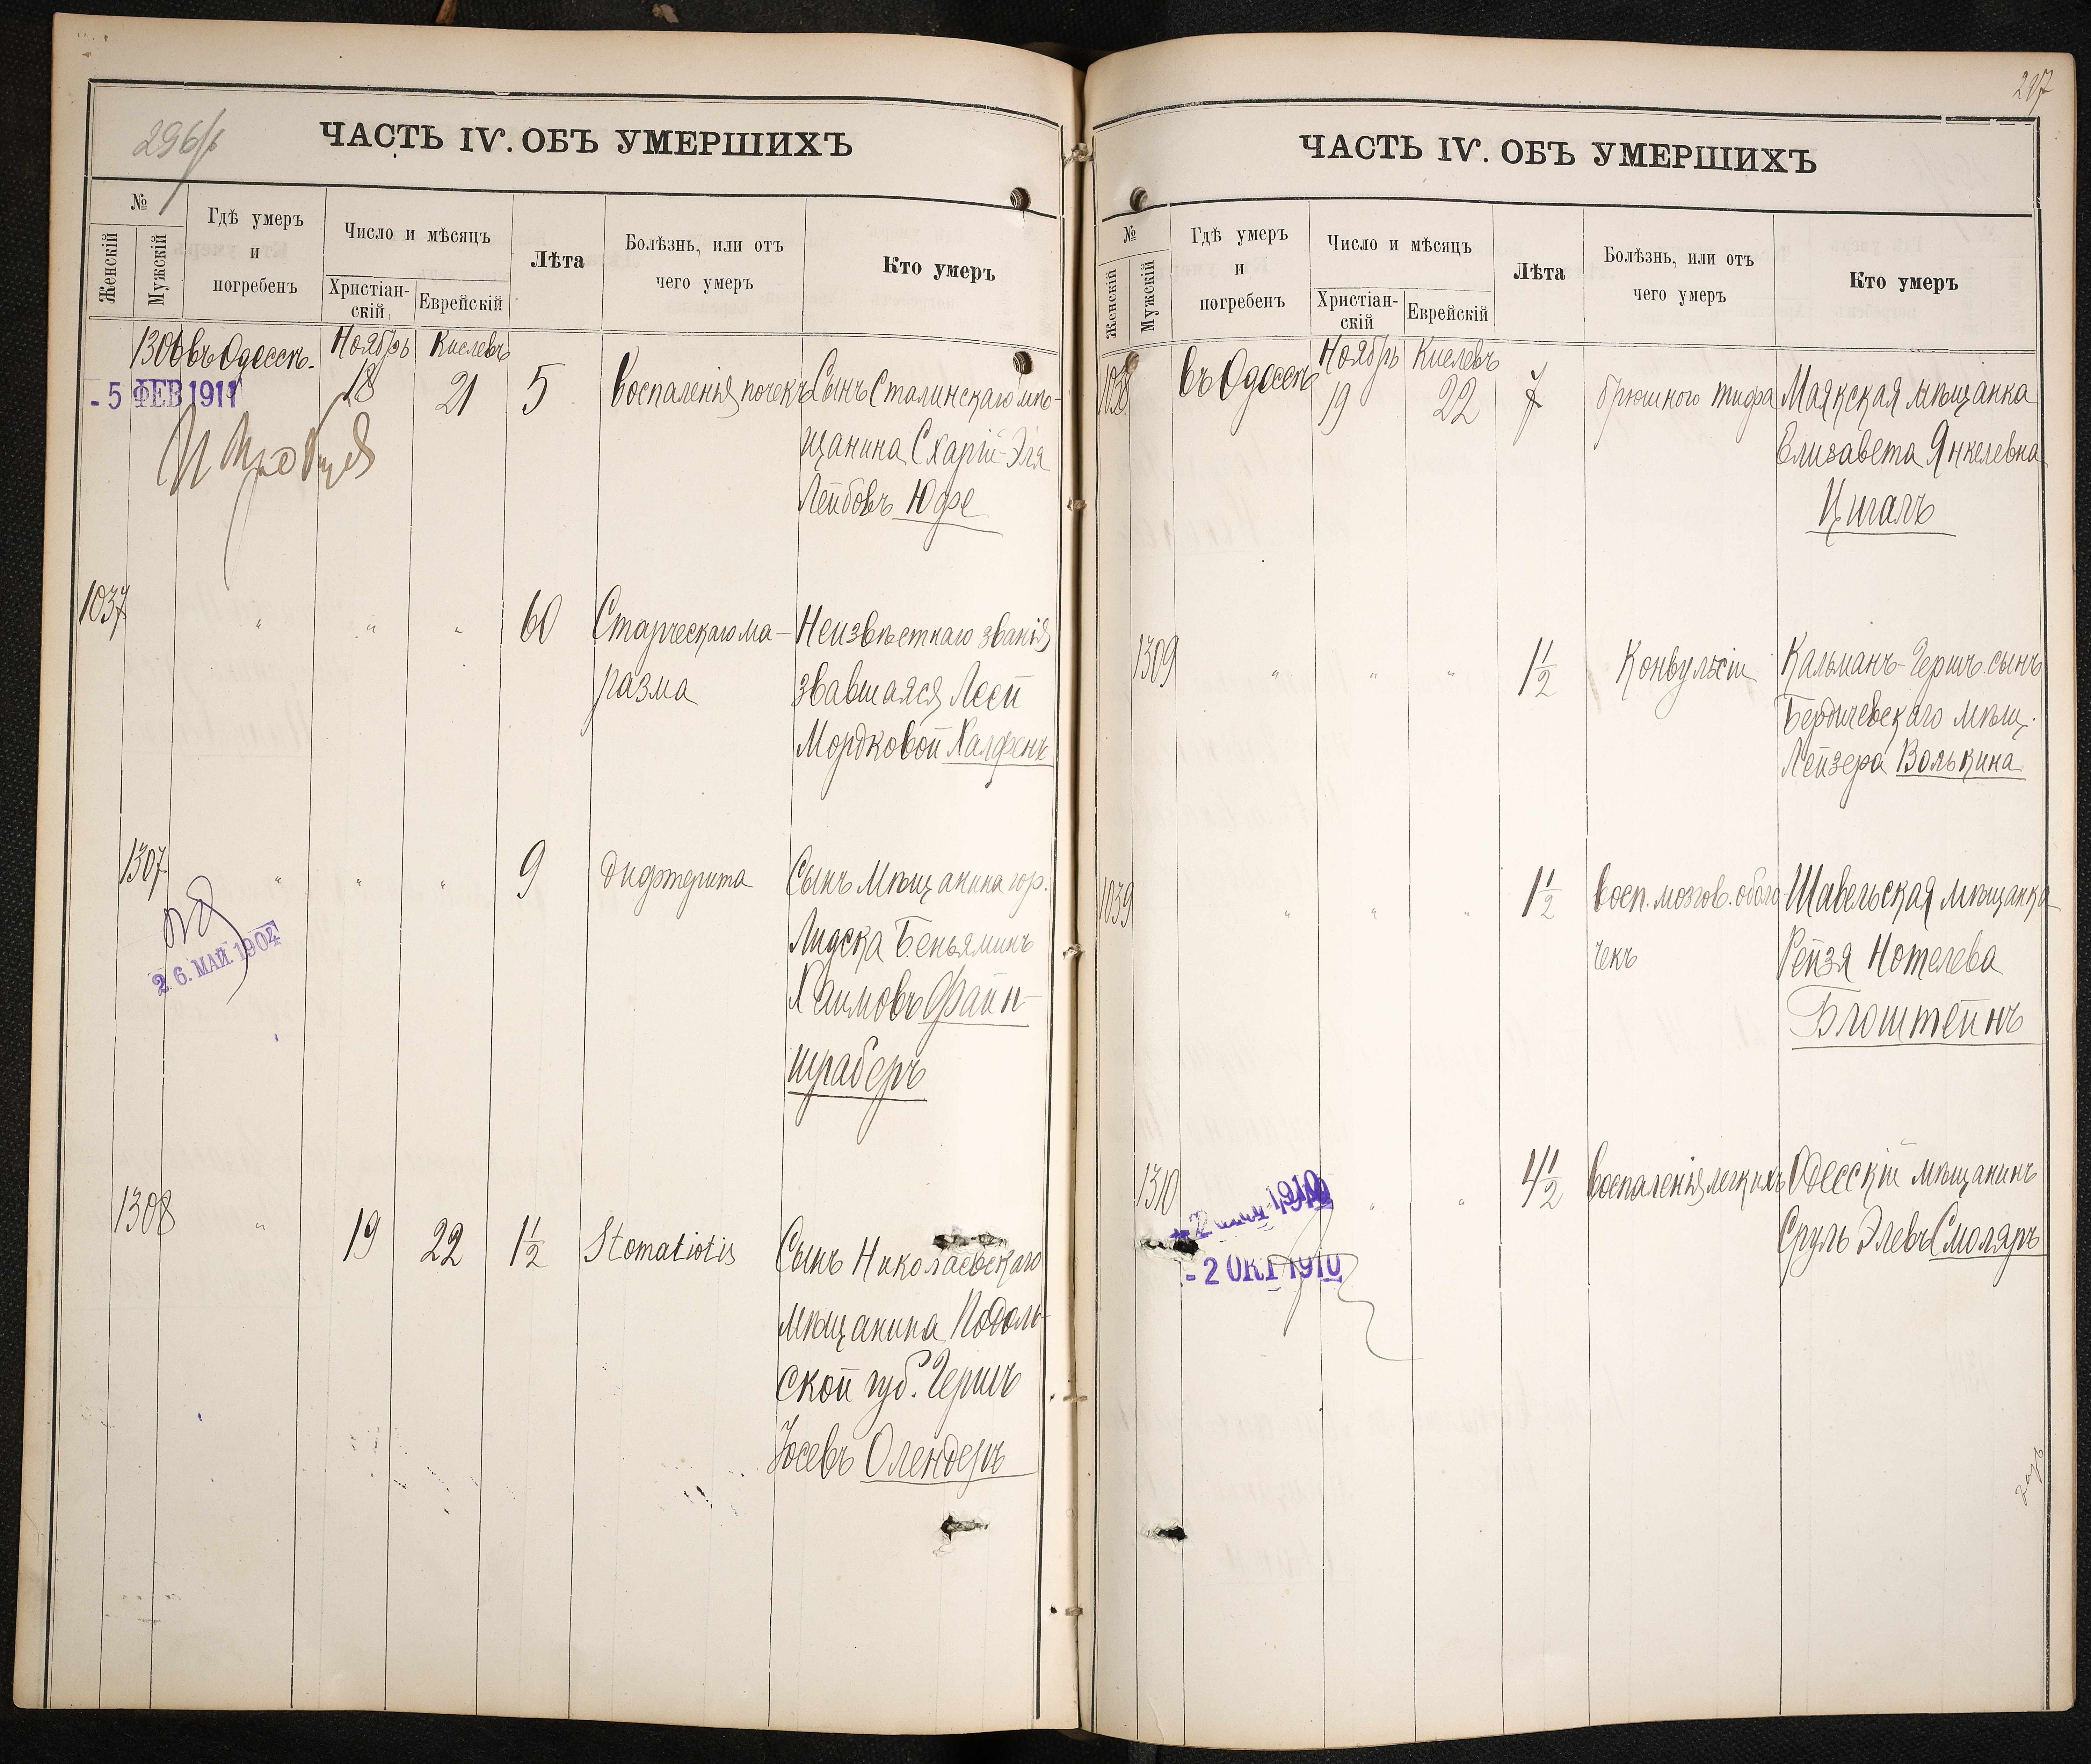 296/б
ЧАСТЬ IV. ОБЪ УМЕРШИХЪ
№
Женскій
Мужскій
Гдѣ умеръ
и
погребенъ
Число и мѣсяцъ
Христіан-
скій
Еврейскій
Лѣта
Болѣзнь, или отъ
чего умеръ
Кто умеръ
1306 въ Одессѣ. Ноябрь Кислевъ
18 21 5 Воспаленія почекъ Сынъ Сталинскаго мѣ-
- 5 ФЕВ 1911
щанина Схарій-Эля
Лейбовъ Юфе
1037 " " " 60 Старческаго ма- Неизвѣстнаго званія
разма звавшаяся Леей
Мордковой Халфенъ
1307 " " " 9 Дифтерита Сынъ Мѣщанина гор.
Лидска Беньяминъ
26. МАЙ 1904
Хаимовъ Файн-
шраберъ
1308 " 19 22 1½ Stomatiotis Сынъ Николаевскаго
мѣщанина Подоль-
ской губ. Гершъ
Іосевъ Олендеръ
297
ЧАСТЬ IV. ОБЪ УМЕРШИХЪ
№
Женскій
Мужскій
Гдѣ умеръ
и
погребенъ
Число и мѣсяцъ
Христіан-
скій
Еврейскій
Лѣта
Болѣзнь, или отъ
чего умеръ
Кто умеръ
1038 въ Одессѣ Ноябрь Кислевъ
19 22 7 брюшного тифа Маякская мѣщанка
Елизавета Янкелевна
Цигалъ
1309 " " " 1½ Конвульсіи Кальманъ-Гершъ сынъ
Бердичевскаго мѣщ.
Лейзера Волькина
1039 " " " 1½ Восп. мозгов. оболо Шавельская мѣщанка
чекъ Рейзя Нотелева
Блоштейнъ
1310 " " 4½ Воспаленія легкихъ Одесскій мѣщанинъ
1910
Сруль Элевъ Смоляръ
- 2 ОКТ 1910